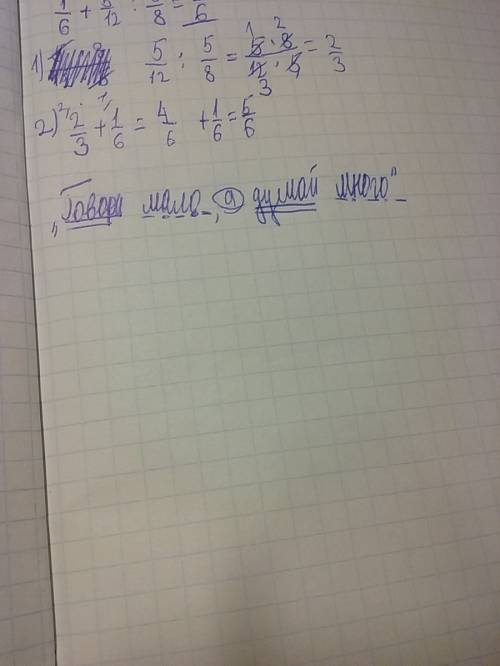 1/6 + 5/12 : 5/8 = 5/6
1) 5/12 : 5/8 = 5 · 8 / 12 · 5 = 2/3
2) 2/3 + 1/6 = 4/6 + 1/6 = 5/6
„Говори мало, а думай много"